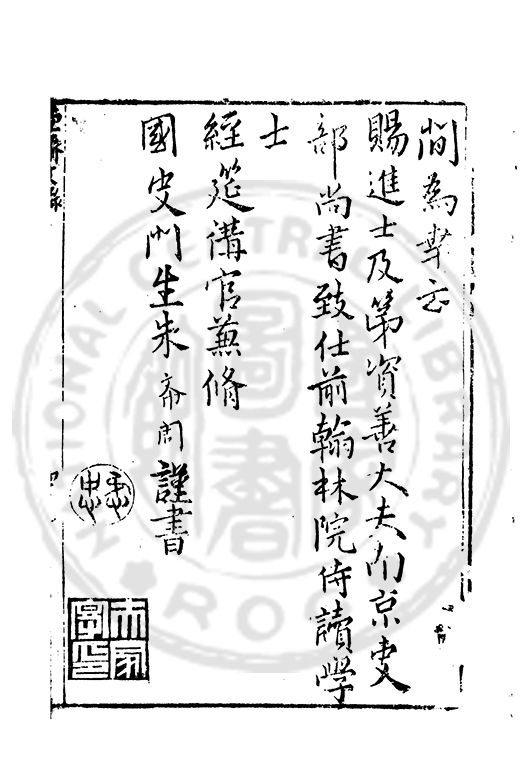 間為
云
賜進士及第資善大夫南京吏
部尚書致仕前翰林院侍讀學
士
經筵講官兼脩
國史門生朱希周謹書
懋忠
圖書
NATIONAL CENTRAL LIBRARY